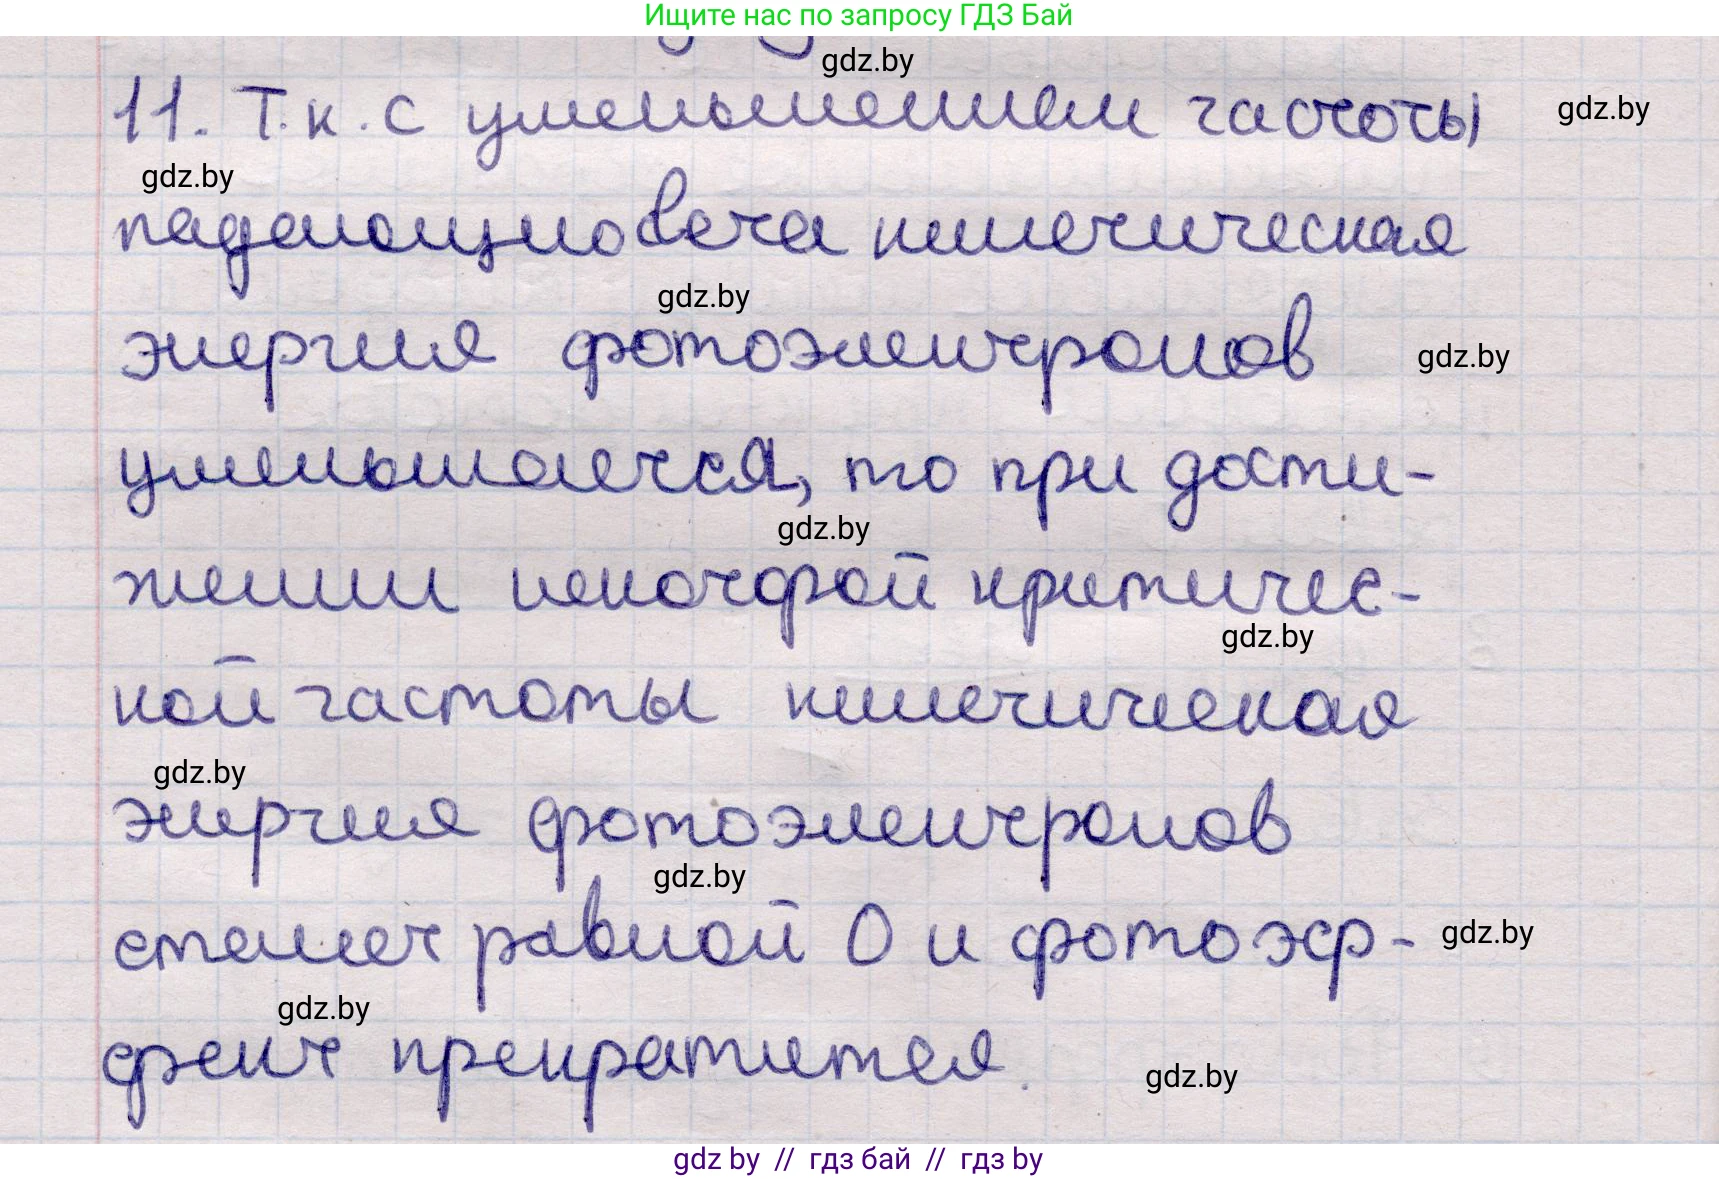 Ищите нас по запросу ГДЗ Бай
gdz.by
11. Т.к. с уменьшением частоты
gdz.by
gdz.by
падающего света кинетическая
gdz.by
энергия фотоэлектронов
gdz.by
уменьшается, то при дости-
gdz.by
жении некоторой критичес-
gdz.by
кой частоты кинетическая
gdz.by
энергия фотоэлектронов
gdz.by
станет равной 0 и фотоэф-
gdz.by
gdz.by
фект прекратится.
gdz.by
gdz by // гдз бай // гдз by